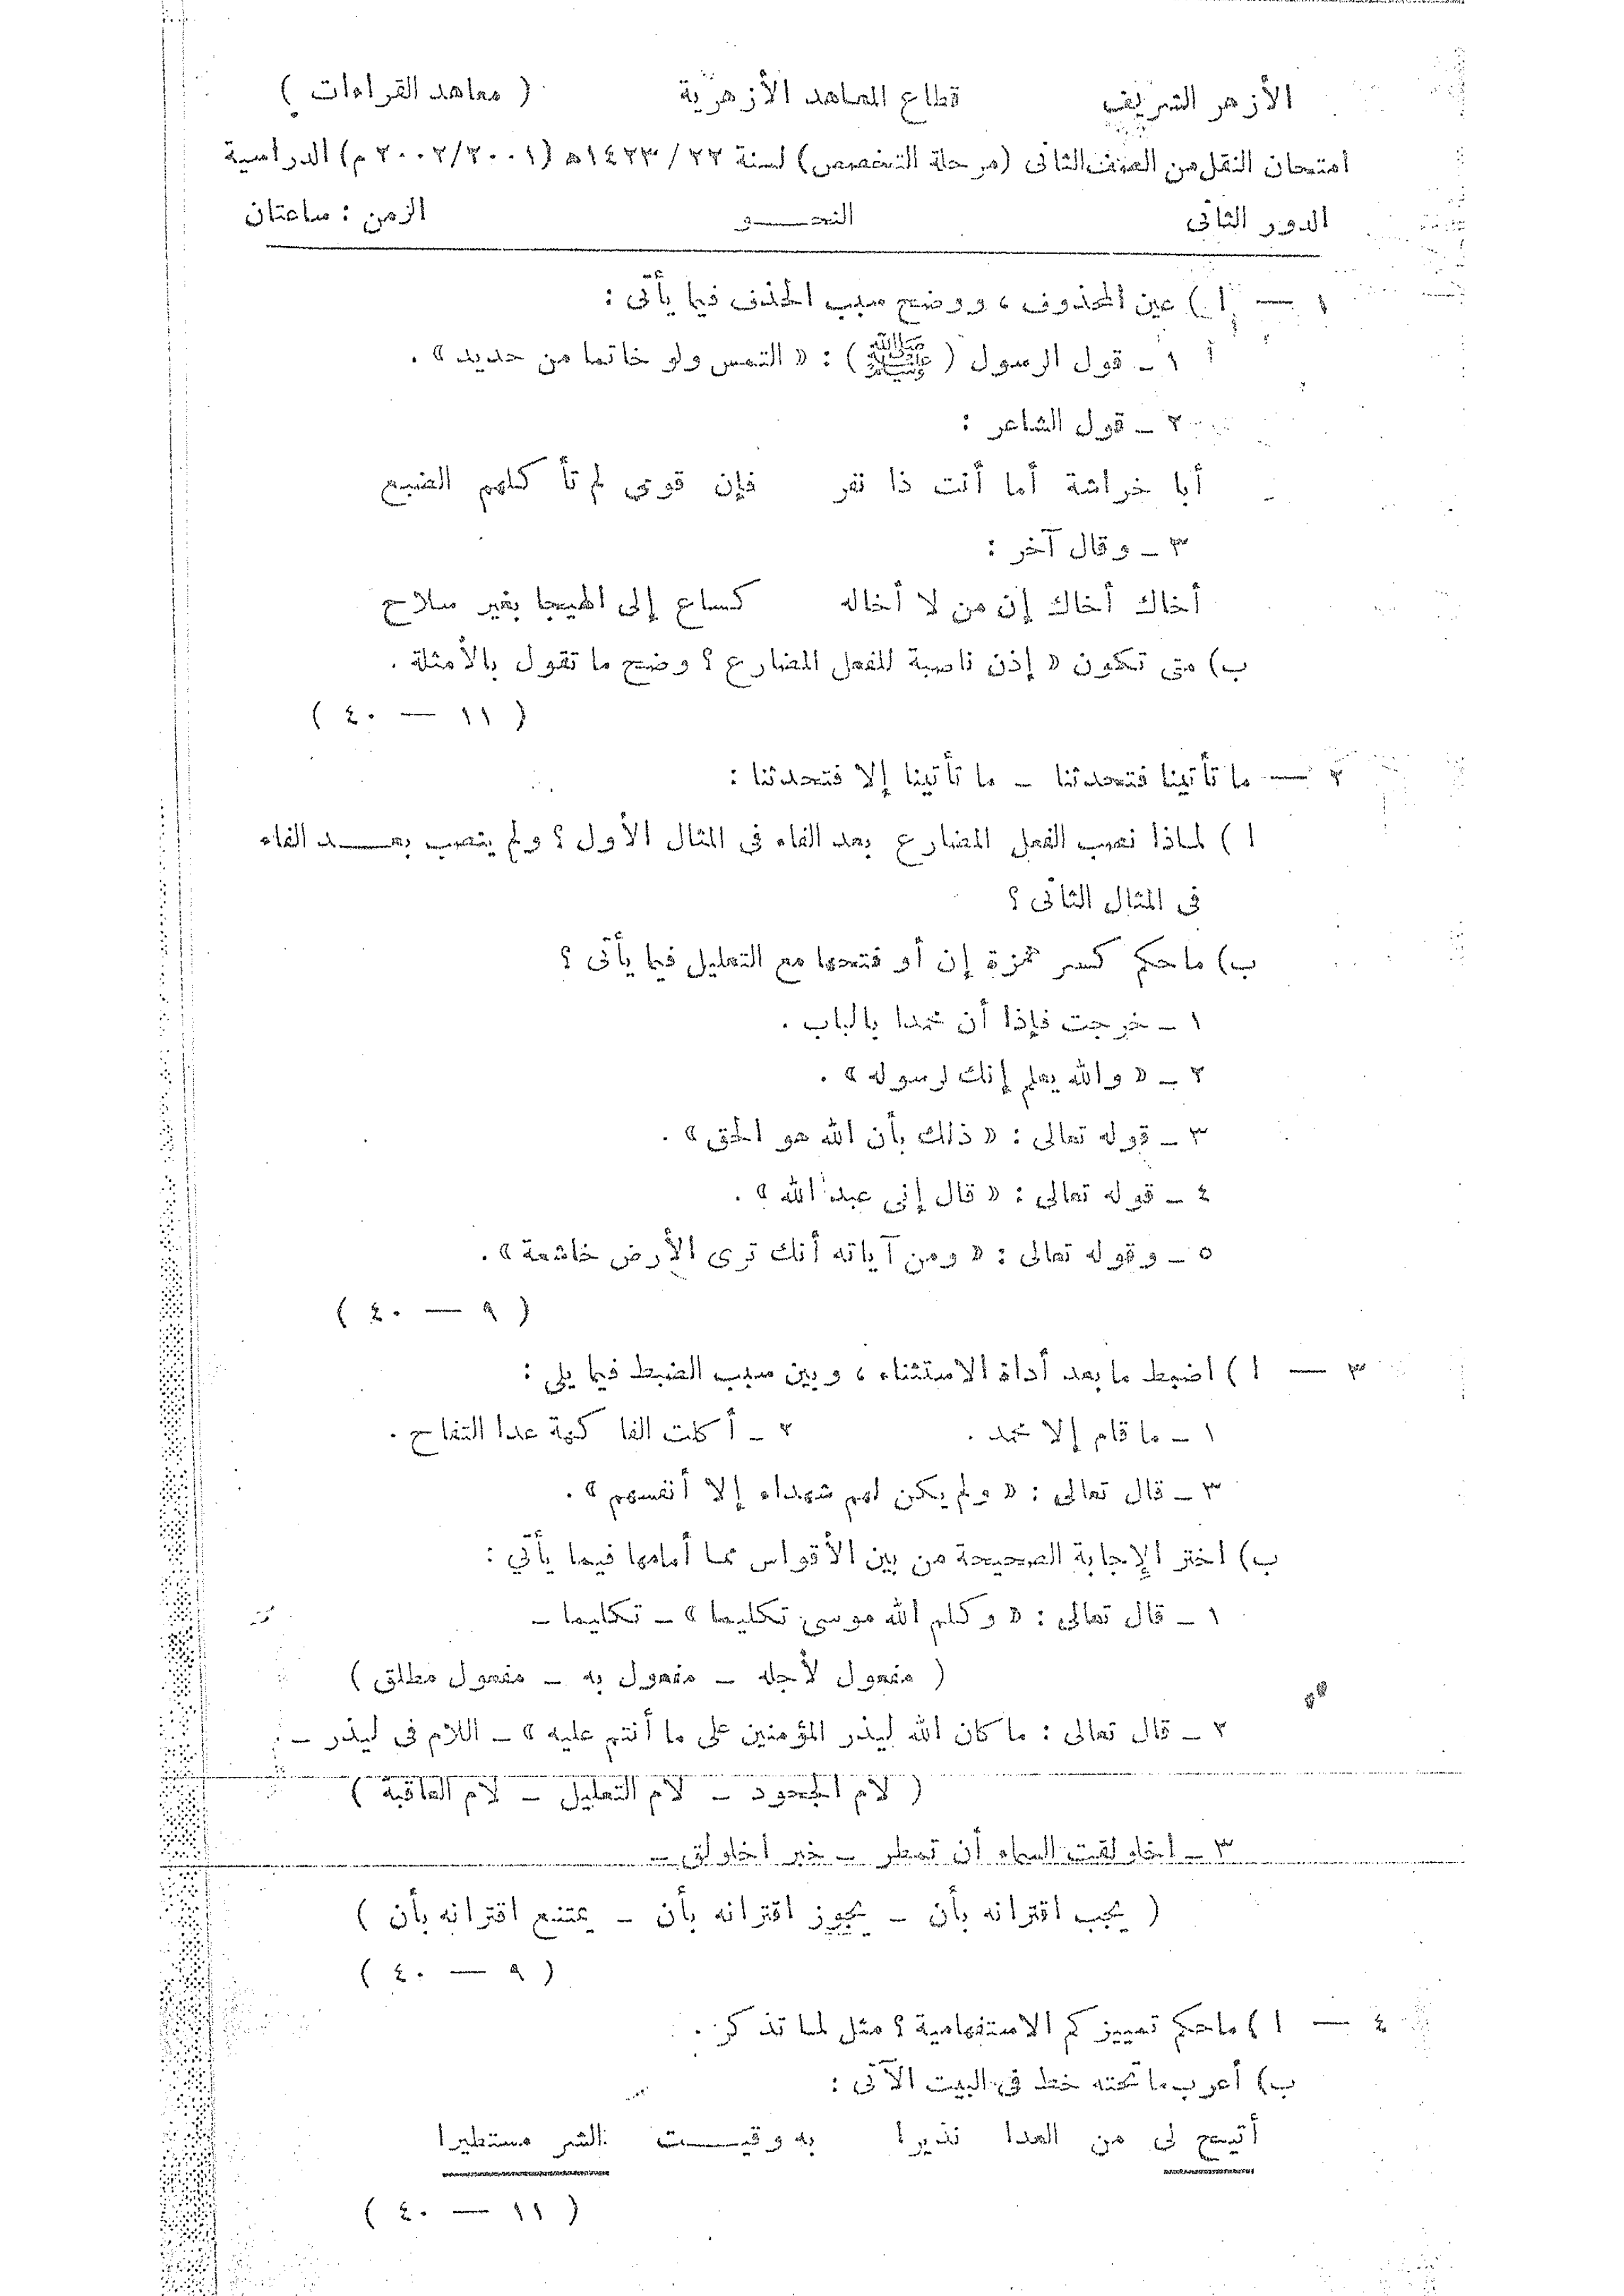 الأزهر الشريف قطاع المعاهد الأزهرية ( معاهد القراءات )
امتحان النقل من الصف الثانى (مرحلة التخصص) لسنة ٢٢ / ١٤٢٣ هـ (٢٠٠١/٢٠٠٢ م) الدراسية
الدور الثانى النحـــو الزمن : ساعتان
١ — ا ) عين المحذوف ، ووضح سبب الحذف فيما يأتى :
١ ـ قول الرسول ( ﷺ ) : « التمس ولو خاتما من حديد » .
٢ ـ قول الشاعر :
أبا خراشة أما أنت ذا نفر فإن قومى لم تأكلهم الضبع
٣ ـ وقال آخر :
أخاك أخاك إن من لا أخاله كساع إلى الهيجا بغير سلاح
ب) متى تكون « إذن ناصبة للفعل المضارع ؟ وضح ما تقول بالأمثلة .
( ١١ — ٤٠ )
٢ — ما تأتينا فتحدثنا ـ ما تأتينا إلا فتحدثنا :
ا ) لماذا نصب الفعل المضارع بعد الفاء فى المثال الأول ؟ ولم ينصب بعـــد الفاء
فى المثال الثانى ؟
ب) ما حكم كسر همزة إن أو فتحها مع التعليل فيما يأتى ؟
١ ـ خرجت فإذا أن محمدا بالباب .
٢ ـ « والله يعلم إنك لرسوله » .
٣ ـ قوله تعالى : « ذلك بأن الله هو الحق » .
٤ ـ قوله تعالى : « قال إنى عبد الله » .
٥ ـ وقوله تعالى : « ومن آياته أنك ترى الأرض خاشعة » .
( ٩ — ٤٠ )
٣ — ا ) اضبط ما بعد أداة الاستثناء ، وبين سبب الضبط فيما يلى :
١ ـ ما قام إلا محمد . ٢ ـ أكلت الفاكهة عدا التفاح .
٣ ـ قال تعالى : « ولم يكن لهم شهداء إلا أنفسهم » .
ب) اختر الإجابة الصحيحة من بين الأقواس مما أمامها فيما يأتي :
١ ـ قال تعالى : « وكلم الله موسى تكليما » ـ تكليما ـ
( مفعول لأجله ـ مفعول به ـ مفعول مطلق )
٢ ـ قال تعالى : ما كان الله ليذر المؤمنين على ما أنتم عليه » ـ اللام فى ليذر ـ
( لام الجحود ـ لام التعليل ـ لام العاقبة )
٣ ـ اخلولقت السماء أن تمطر ـ خبر اخلولق ـ
( يجب اقترانه بأن ـ يجوز اقترانه بأن ـ يمتنع اقترانه بأن )
( ٩ — ٤٠ )
٤ — ا ) ما حكم تمييز كم الاستفهامية ؟ مثل لما تذكر .
ب) أعرب ما تحته خط فى البيت الآتى :
أتيح لى من العدا نذيرا به وقيـــت الشر مستطيرا
( ١١ — ٤٠ )